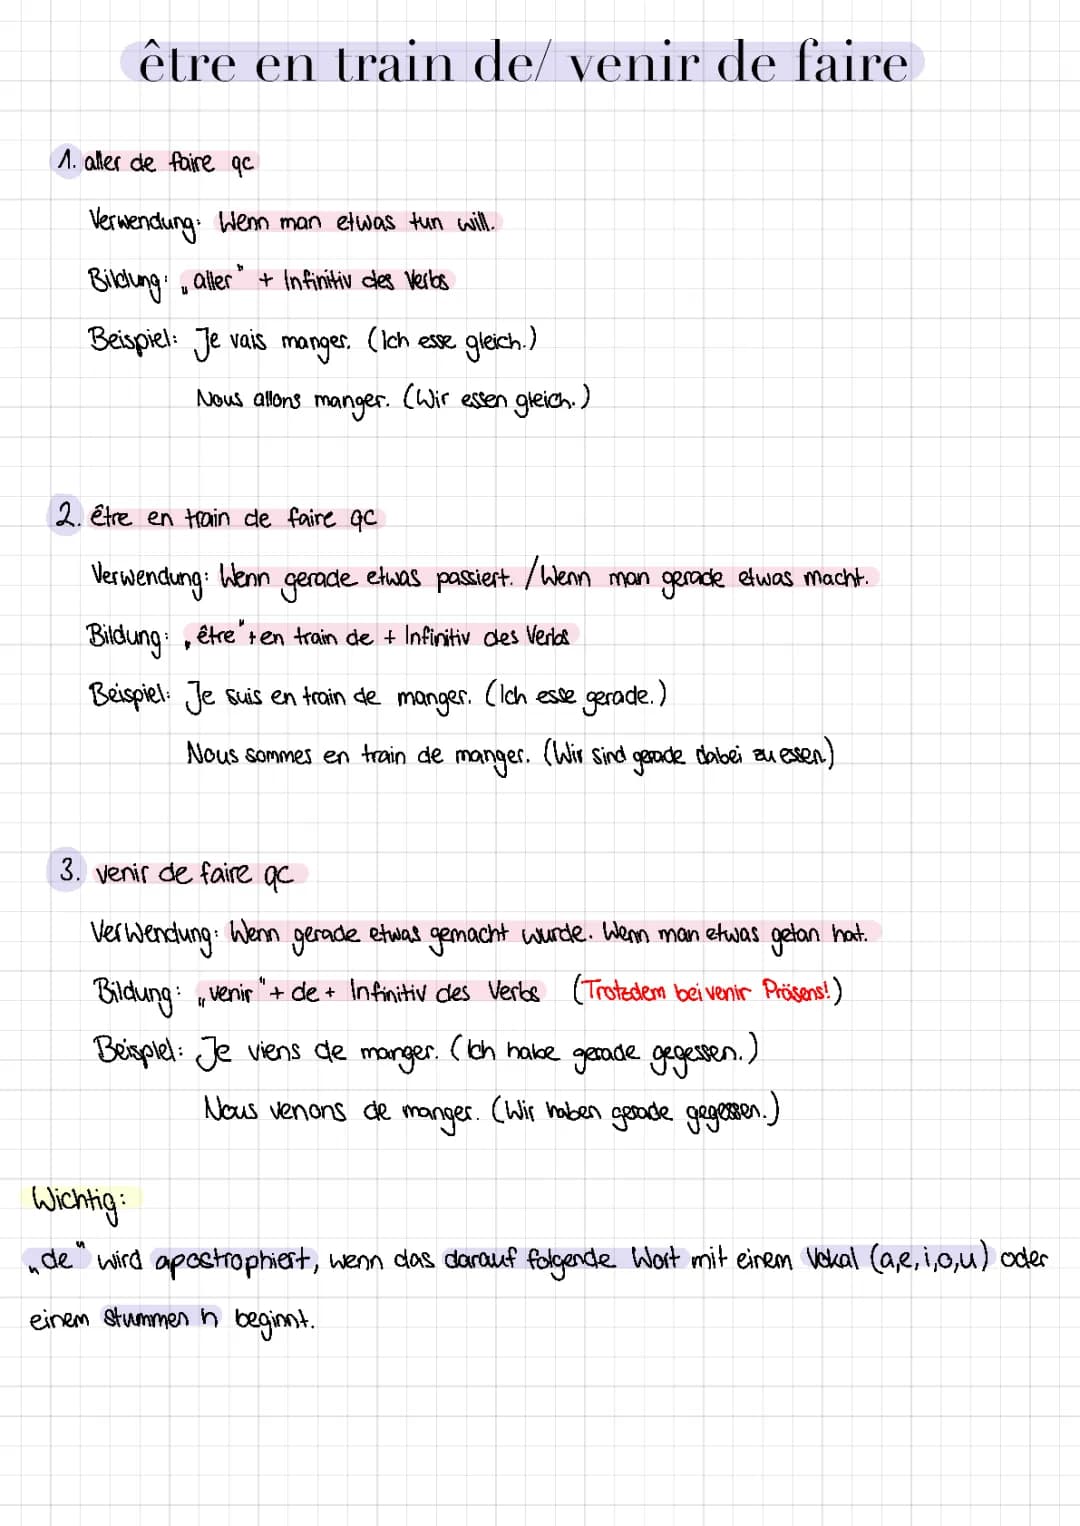 être en train de/ venir de faire
1. aller de faire qc
Verwendung: Wenn man etwas tun will.
Bildung: „aller" + Infinitiv des Verbs
Beispiel: Je vais manger. (Ich esse gleich.)
Nous allons manger. (Wir essen gleich.)
2. être en train de faire qc
Verwendung: Wenn gerade etwas passiert. / Wenn man gerade etwas macht.
Bildung: „être" + en train de + Infinitiv des Verbs
Beispiel: Je suis en train de manger. (Ich esse gerade.)
Nous sommes en train de manger. (Wir sind gerade dabei zu essen.)
3. venir de faire qc
Verwendung: Wenn gerade etwas gemacht wurde. Wenn man etwas getan hat.
Bildung: „venir" + de + Infinitiv des Verbs (Trotzdem bei venir Präsens!)
Beispiel: Je viens de manger. (Ich habe gerade gegessen.)
Nous venons de manger. (Wir haben gerade gegessen.)
Wichtig:
„de" wird apostrophiert, wenn das darauf folgende Wort mit einem Vokal (a,e,i,o,u) oder
einem stummen h beginnt.